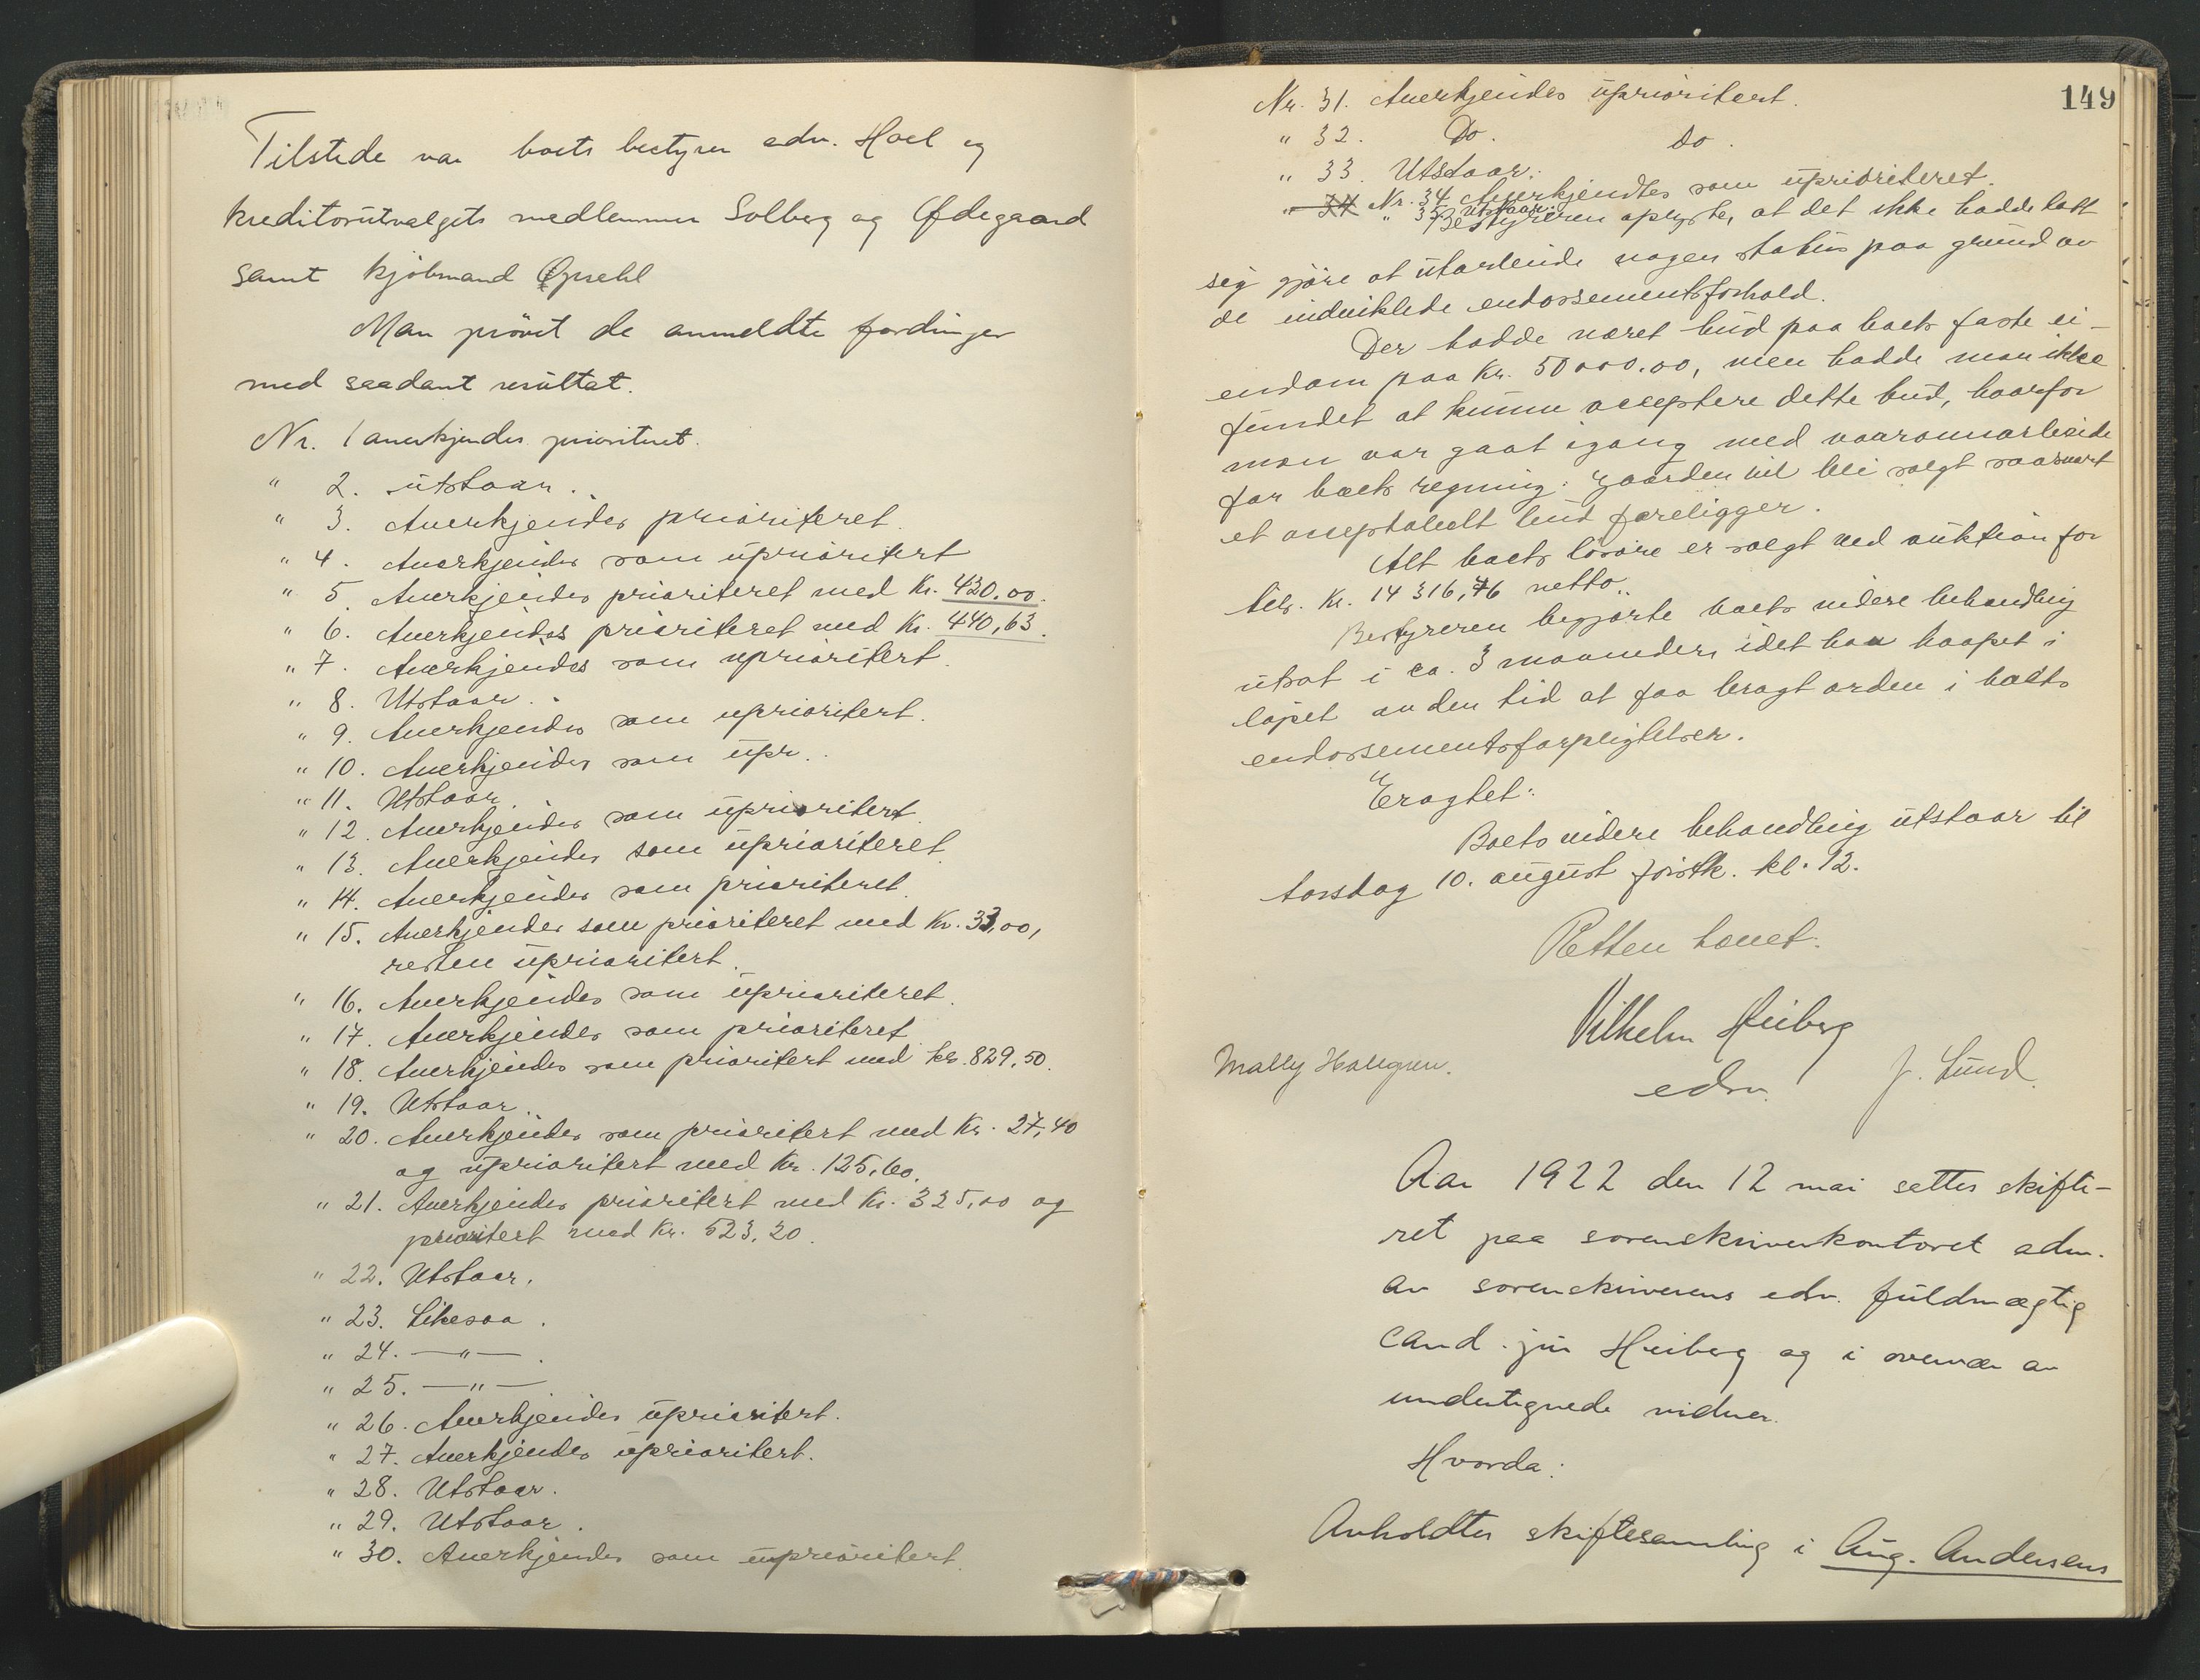 Tilstede var boets bestyrer adv. Hoel og
kreditorutvalgets medlemmer Solberg og Ødegaard
samt kjøbmand Opsehl
Man prøvet de anmeldte fordringer
med saadant resultat.
Nr. 1 anerkjendes prioriteret.
" 2. utstaar.
" 3. Anerkjendes prioriteret.
" 4. Anerkjendes som uprioritert
" 5. Anerkjendes prioriteret med Kr. 430.00.
" 6. Anerkjendes prioriteret med Kr. 440,63.
" 7. Anerkjendes som uprioritert.
" 8. Utstaar.
" 9. Anerkjendes som uprioritert.
" 10. Anerkjendes som upr..
" 11. Utstaar.
" 12. Anerkjendes som uprioritert.
" 13. Anerkjendes som uprioriteret.
" 14. Anerkjendes som prioriteret.
" 15. Anerkjendes som prioriteret med Kr. 33,00,
resten uprioritert.
" 16. Anerkjendes som uprioriteret.
" 17. Anerkjendes som prioriteret
" 18. Anerkjendes som prioritert med kr. 829.50.
" 19. Utstaar.
" 20. Anerkjendes som prioritert med Kr. 27,40
og uprioritert med Kr. 125.60.
" 21. Anerkjendes prioritert med Kr. 325,00 og
prioritert med Kr. 523.20.
" 22. Utstaar.
" 23. Likesaa.
" 24. —"—.
" 25. —"—
" 26. Anerkjendes uprioritert.
" 27. Anerkjendes uprioritert.
" 28. Utstaar.
" 29. Utstaar.
" 30. Anerkjendes som uprioritert.
149
Nr. 31. Anerkjendes uprioritert.
" 32. Do. Do.
" 33. Utstaar.
" 34 Nr. 34 Anerkjendtes som uprioriteret.
" 35. Utstaar.
Bestyreren oplyste, at det ikke hadde latt
sig gjøre at utarbeide nogen status paa grund av
de indviklede endorsementsforhold.
Der hadde været bud paa boets faste ei-
endom paa Kr. 50000.00, men hadde man ikke
fundet at kunne acceptere dette bud, hvorfor
man var gaat igang med vaaronnarbeide
for boets regning. Gaarden vil bli solgt saasnart
et acceptabelt bud foreligger.
Alt boets løsøre er solgt ved auktion for
tils. Kr. 14 316,76 netto.
Bestyreren begjærte boets videre behandling
utsat i ca. 3 maaneder, idet han haapet i
løpet av den tid at faa bragt orden i boets
endorsementsforpligtelser.
Eragtet:
Boets videre behandling utstaar til
torsdag 10. august førstk. kl. 12.
Retten hevet.
Vilhelm Heiberg
Mally Hallgren. edsv. J. Lund.
Aar 1922 den 12 mai settes skifte-
ret paa sorenskriverkontoret adm.
av sorenskriverens edsv. fuldmægtig
cand. jur Heiberg og i overvær av
undertegnede vidner.
Hvorda:
Avholdtes skiftesamling i Aug. Andersens